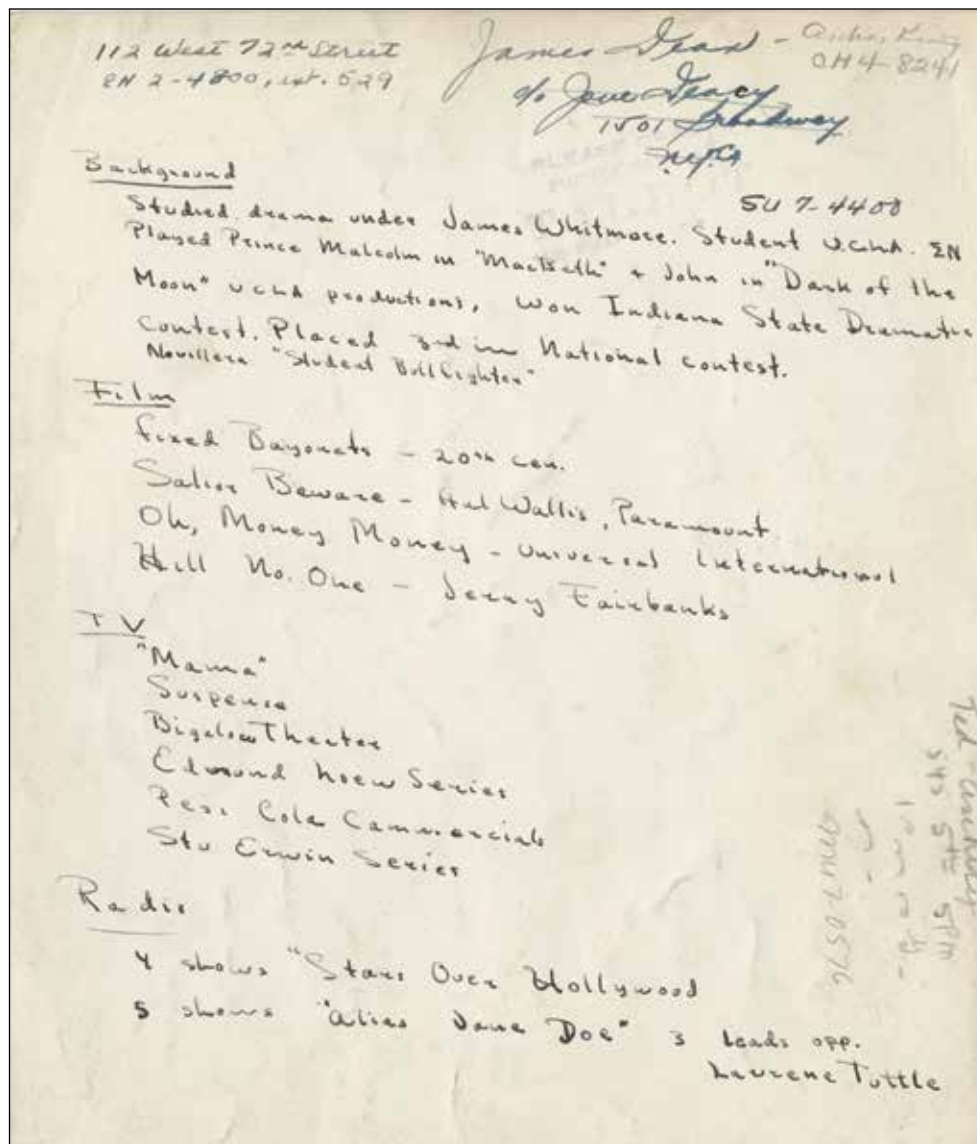 112 West 72nd Street
EN 2-4800, ext. 529
James Dean - Archer King
OH 4-8241
c/o Jane Deacy
1501 Broadway
N.Y.C.
SU 7-4400
Background
Studied drama under James Whitmore. Student U.C.L.A. ΣN
Played Prince Malcolm in "MacBeth" + John in "Dark of the
Moon" UCLA productions, Won Indiana State Dramatic
Contest. Placed 3rd in National contest.
Novillera "Student Bullfighter"
Film
Fixed Bayonets - 20th Cen.
Salior Beware - Hal Wallis, Paramount
Oh, Money Money - Universal International
Hill No. One - Jerry Fairbanks
TV
"Mama"
Suspense
Bigelow Theater
Edmund Loew Series
Pepsi Cola Commercials
Stu Erwin Series
Radio
4 shows "Stars Over Hollywood
5 shows "Alias Jane Doe" 3 leads opp.
Laurene Tuttle
Ted